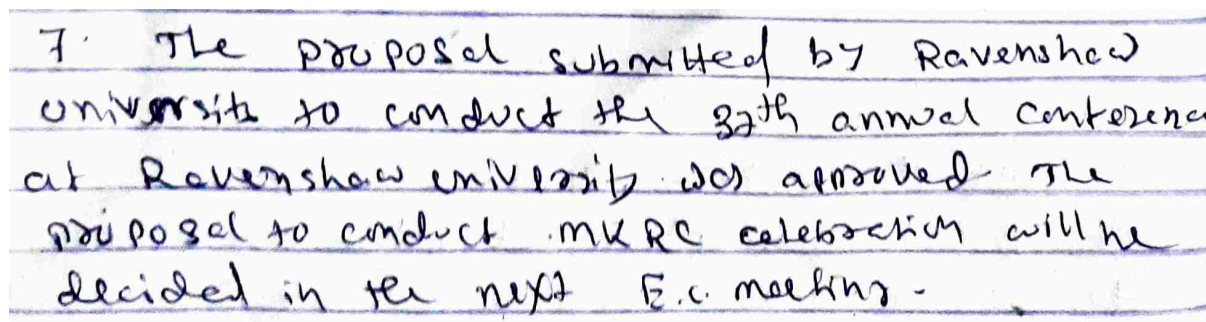 7. The proposal submitted by Ravenshaw
University to conduct the 37th annual conferenc
at Ravenshaw university was approved. The
proposal to conduct MKRC celebration will be
decided in the next E.C. meeting.